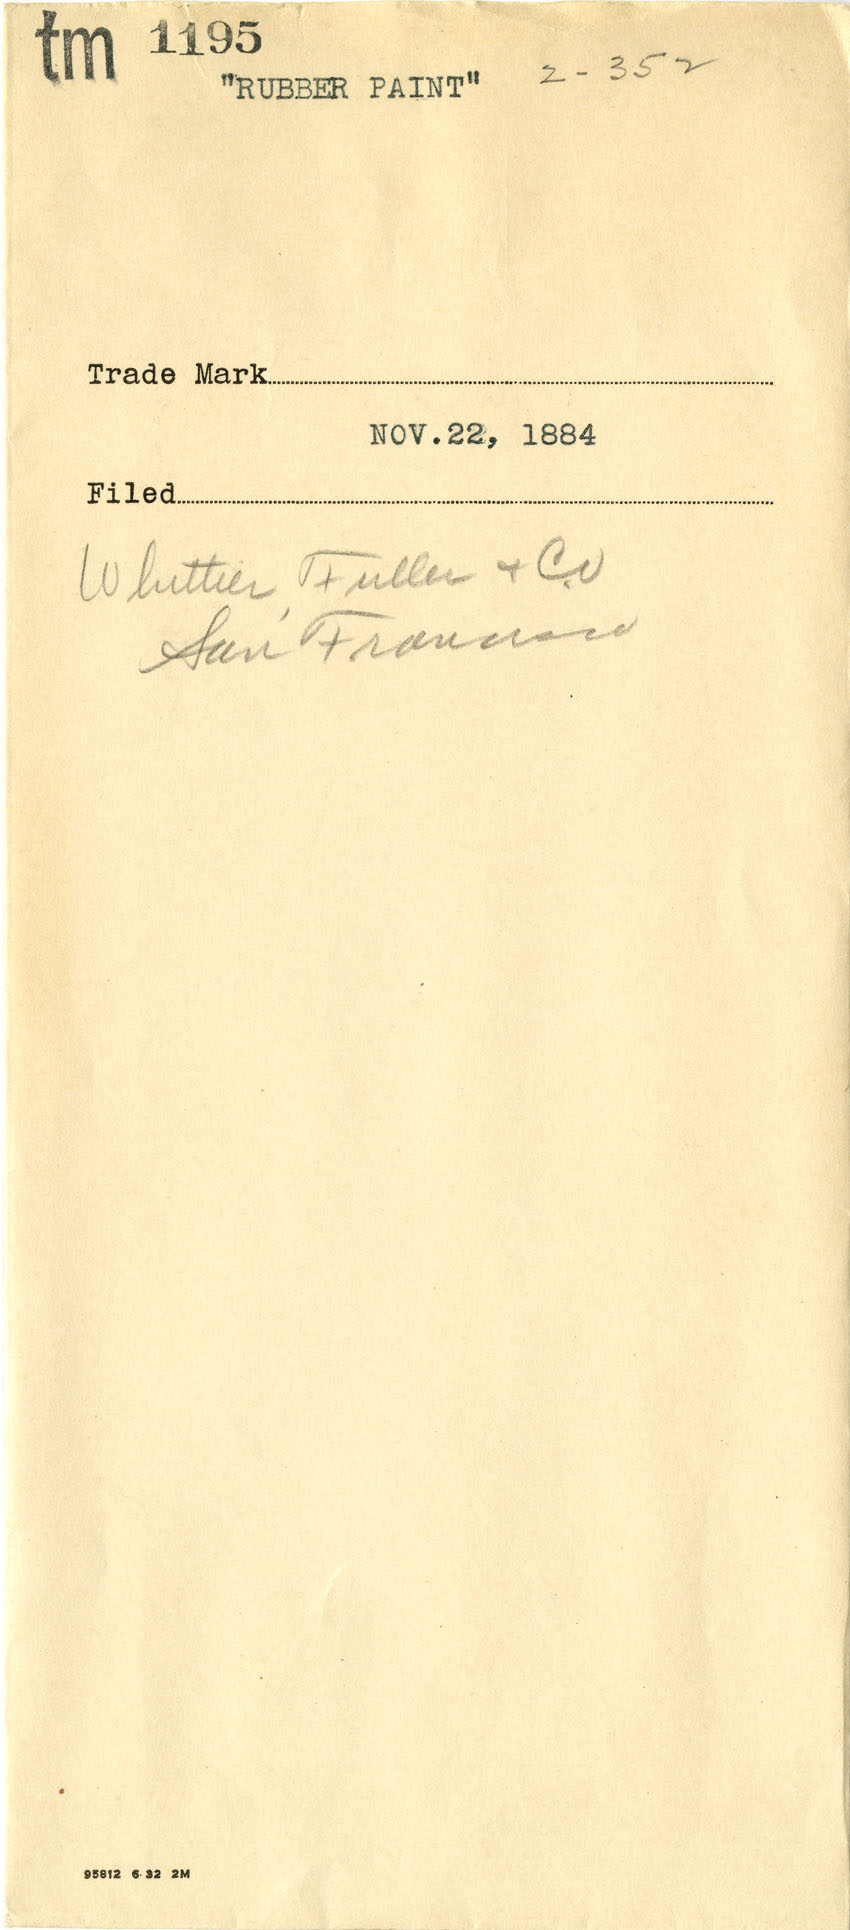 tm 1195
"RUBBER PAINT" 2-352
Trade Mark
NOV.22, 1884
Filed
Whittier, Fuller + Co
San Francisco
95812 6-32 2M